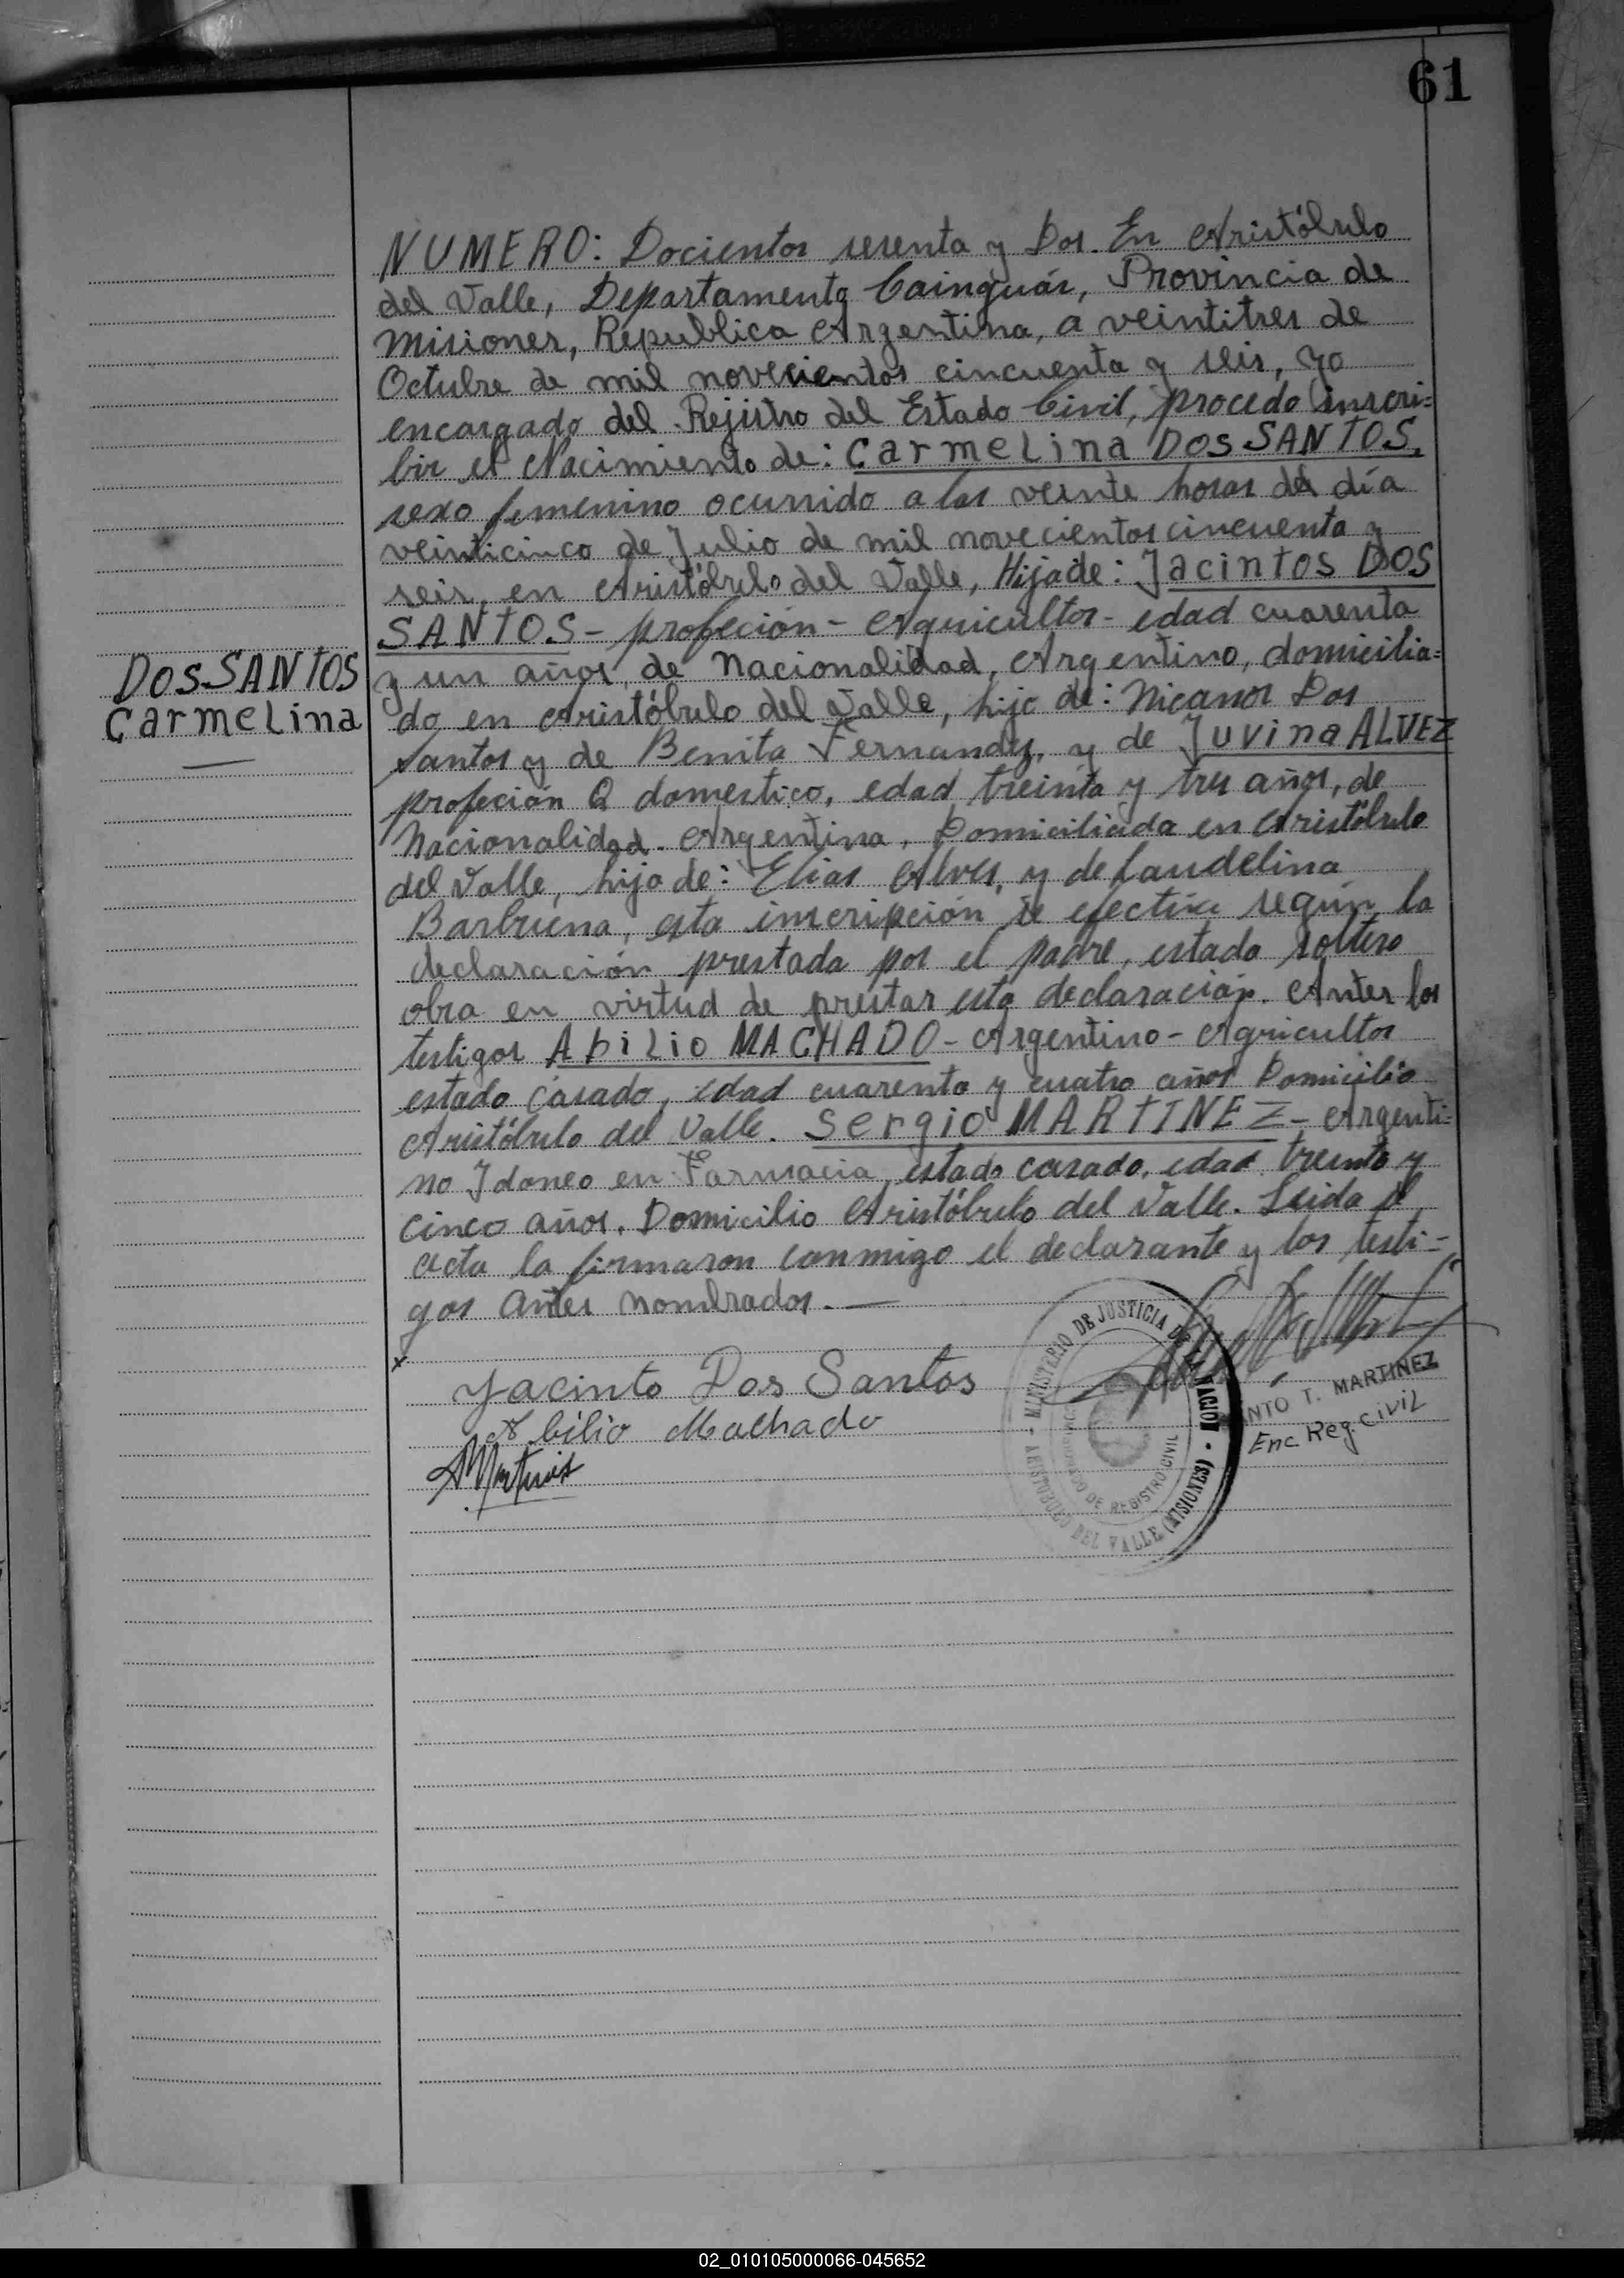 61
NUMERO: Docientos sesenta y Dos. En Aristóbulo
del Valle, Departamento Cainguás, Provincia de
Misiones, Republica Argentina, a veintitres de
Octubre de mil novecientos cincuenta y seis, yo
encargado del Rejistro del Estado Civil, procedo inscri=
bir el Nacimiento de: Carmelina DOS SANTOS,
sexo femenino ocurrido a las veinte horas del día
veinticinco de Julio de mil novecientos cincuenta y
seis, en Aristóbulo del Valle, Hija de: Jacintos DOS
SANTOS - profeción - Agricultor - edad cuarenta
y un años, de Nacionalidad, Argentino, domicilia=
do en Aristóbulo del Valle, hijo de: Nicanor Dos
Santos y de Benita Fernandez, y de Juvina ALVEZ
profeción Q domestico, edad treinta y tres años, de
Nacionalidad. Argentina, Domiciliada en Aristóbulo
del Valle, hija de: Elias Alves, y de Laudelina
Barbuena, esta inscripción se efectúa según la
declaración prestada por el padre, estado soltero
obra en virtud de prestar esta declaración. Antes los
testigos Abilio MACHADO - Argentino - Agricultor
estado casado, edad cuarenta y cuatro años Domicilio
Aristóbulo del Valle. Sergio MARTINEZ - Argenti-
no Idoneo en Farmacia, estado casado, edad treinta y
cinco años. Domicilio Aristóbulo del Valle. Leida el
acta la firmaron conmigo el declarante y los testi-
gos antes nombrados. —
DOS SANTOS
Carmelina
x
Jacinto Dos Santos
Abilio Machado
SMartinez
MINISTERIO DE JUSTICIA DE LA NACION
DE REGISTRO CIVIL
ARISTOBULO DEL VALLE (MISIONES)
NTO T. MARTINEZ
Enc Reg. Civil
02_010105000066-045652